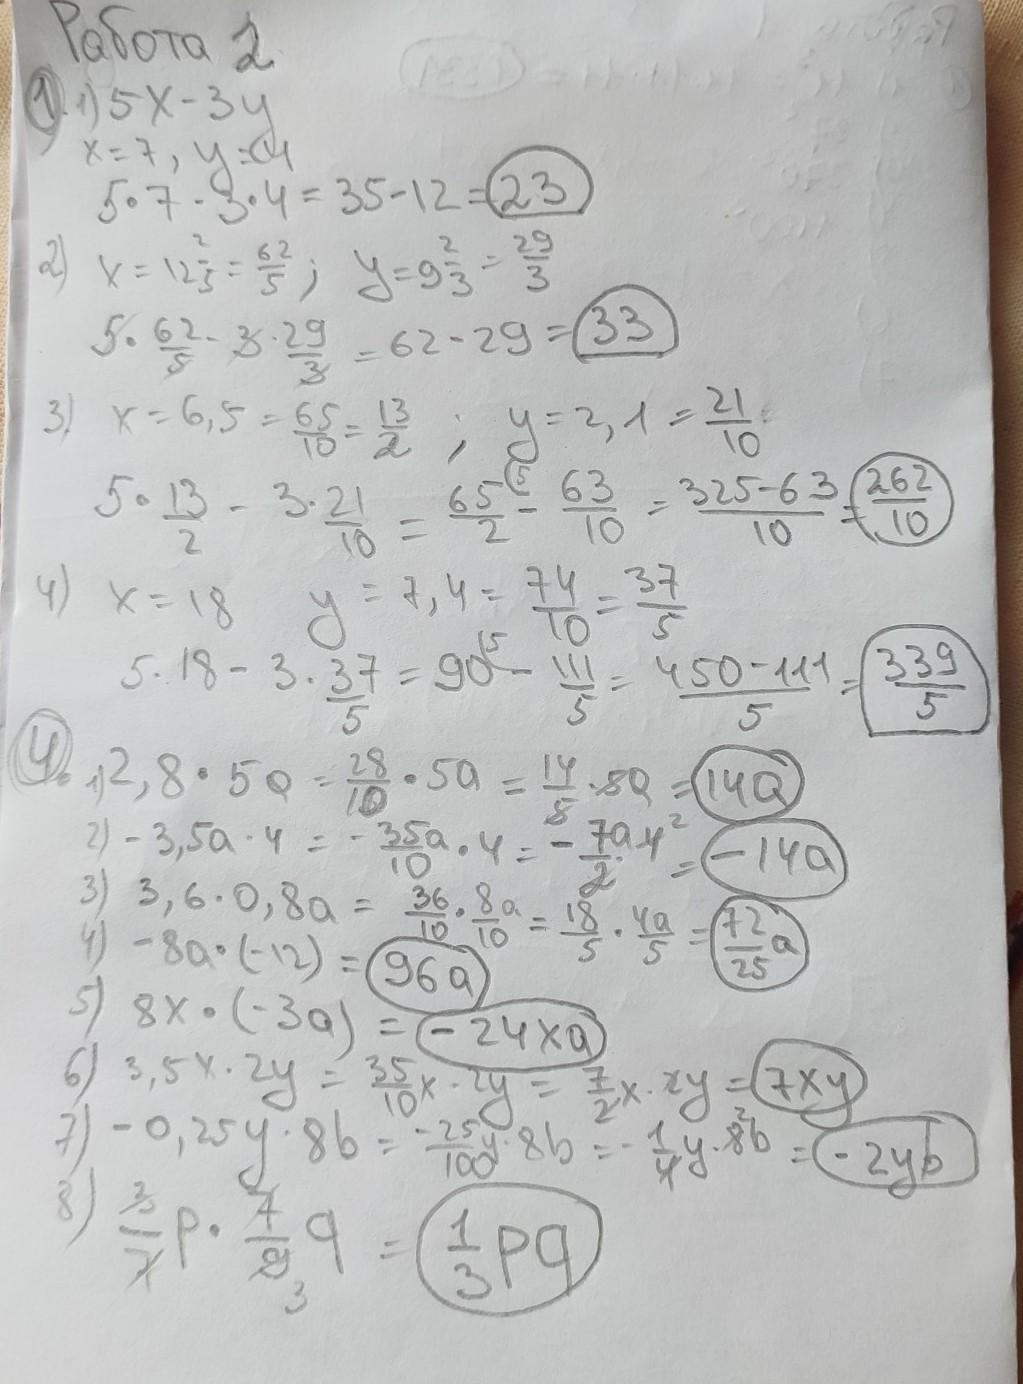 Работа 2
1. 1) 5x - 3y
x = 7, y = 4
5 · 7 - 3 · 4 = 35 - 12 = 23
2) x = 12 2/5 = 62/5 ; y = 9 2/3 = 29/3
5 · 62/5 - 3 · 29/3 = 62 - 29 = 33
3) x = 6,5 = 65/10 = 13/2 ; y = 2,1 = 21/10
5 · 13/2 - 3 · 21/10 = 65/2 (5 - 63/10 = 325-63/10 = 262/10
4) x = 18 y = 7,4 = 74/10 = 37/5
5 · 18 - 3 · 37/5 = 90 (5 - 111/5 = 450-111/5 = 339/5
4. 1) 2,8 · 5a = 28/10 · 5a = 14/5 · 5a = 14a
2) -3,5a · 4 = - 35a/10 · 4 = - 7a · 4 2/2 = -14a
3) 3,6 · 0,8a = 36/10 · 8a/10 = 18/5 · 4a/5 = 72/25 a
4) -8a · (-12) = 96a
5) 8x · (-3a) = -24xa
6) 3,5x · 2y = 35/10 x · 2y = 7/2 x · 2y = 7xy
7) -0,25y · 8b = -25/100 y · 8b = - 1/4 y · 8 2 b = -2yb
8) 3/7 p · 7/9 3 q = 1/3 pq